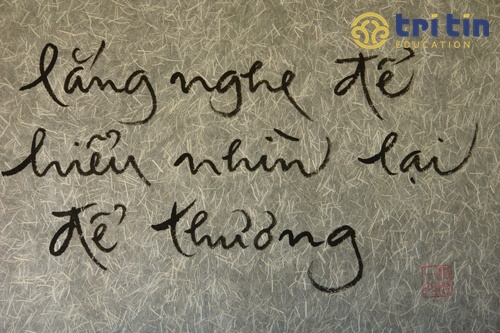 tri tin
EDUCATION
lắng nghe để
hiểu nhìn lại
để thương